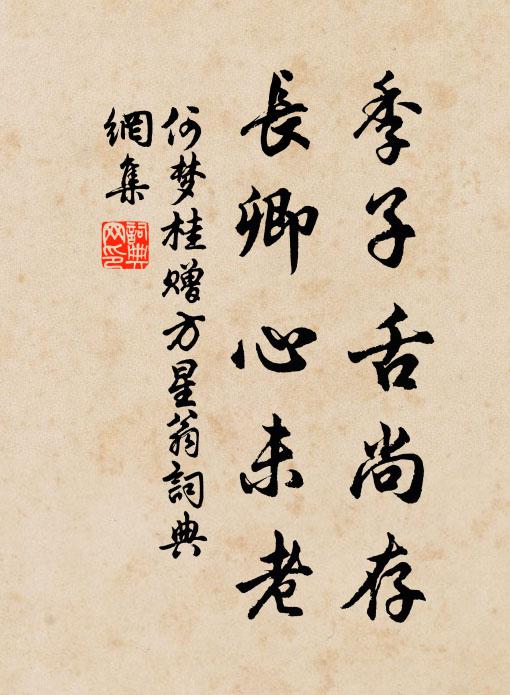 季子舌尚存
長卿心未老
何梦桂赠方星翁詞典
網集
詞典
网印